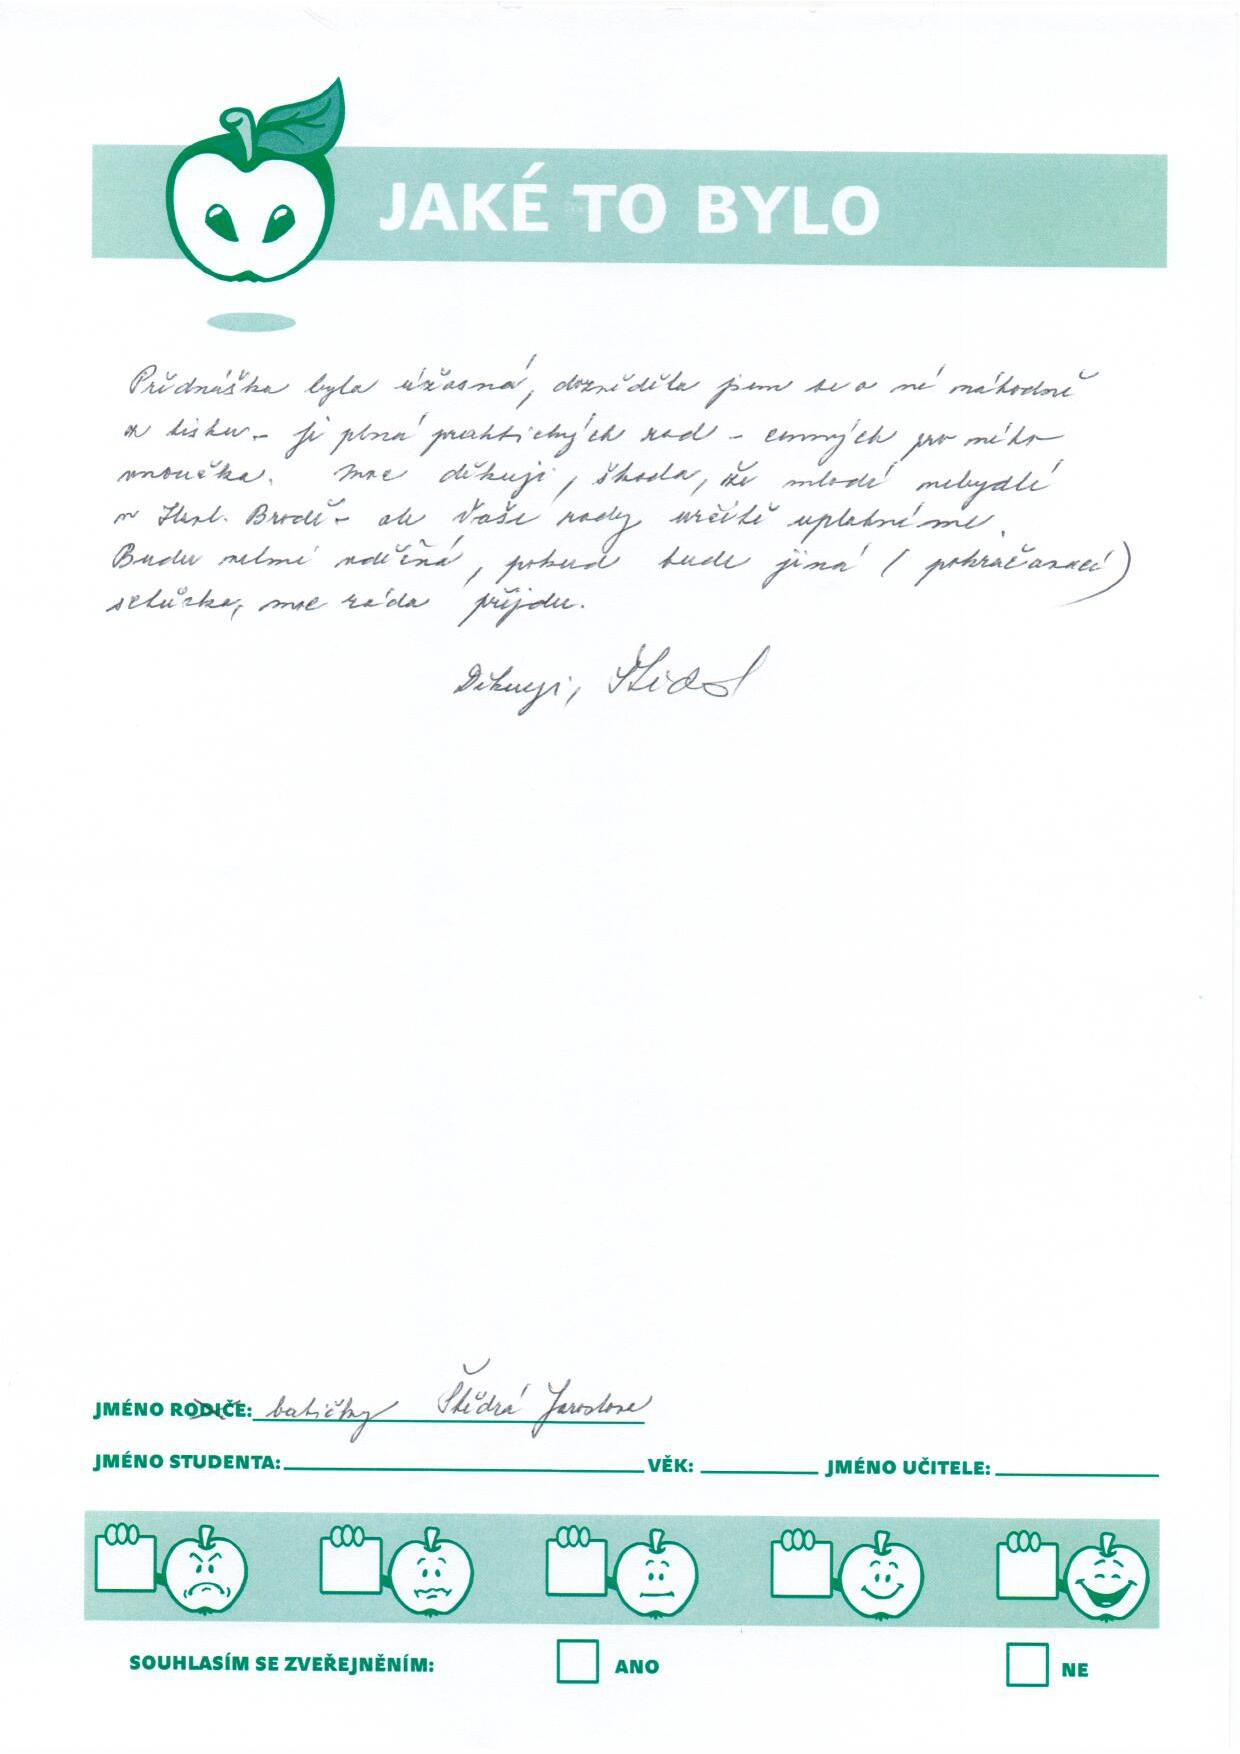 JAKÉ TO BYLO
Přednáška byla úžasná, dozvěděla jsem se o ní náhodně
z tisku - je plná praktických rad - cenných pro mého
vnoučka. Moc děkuji, škoda, že mladí nebydlí
v Havl. Brodě - ale Vaše rady určitě uplatníme.
Budu velmi vděčná, pokud bude jiná (pokračovací)
schůzka, moc ráda přijdu.
Děkuji,
JMÉNO RODIČE: babičky Štědrá Jaroslava
JMÉNO STUDENTA: VĚK: JMÉNO UČITELE:
SOUHLASÍM SE ZVEŘEJNĚNÍM: ANO NE